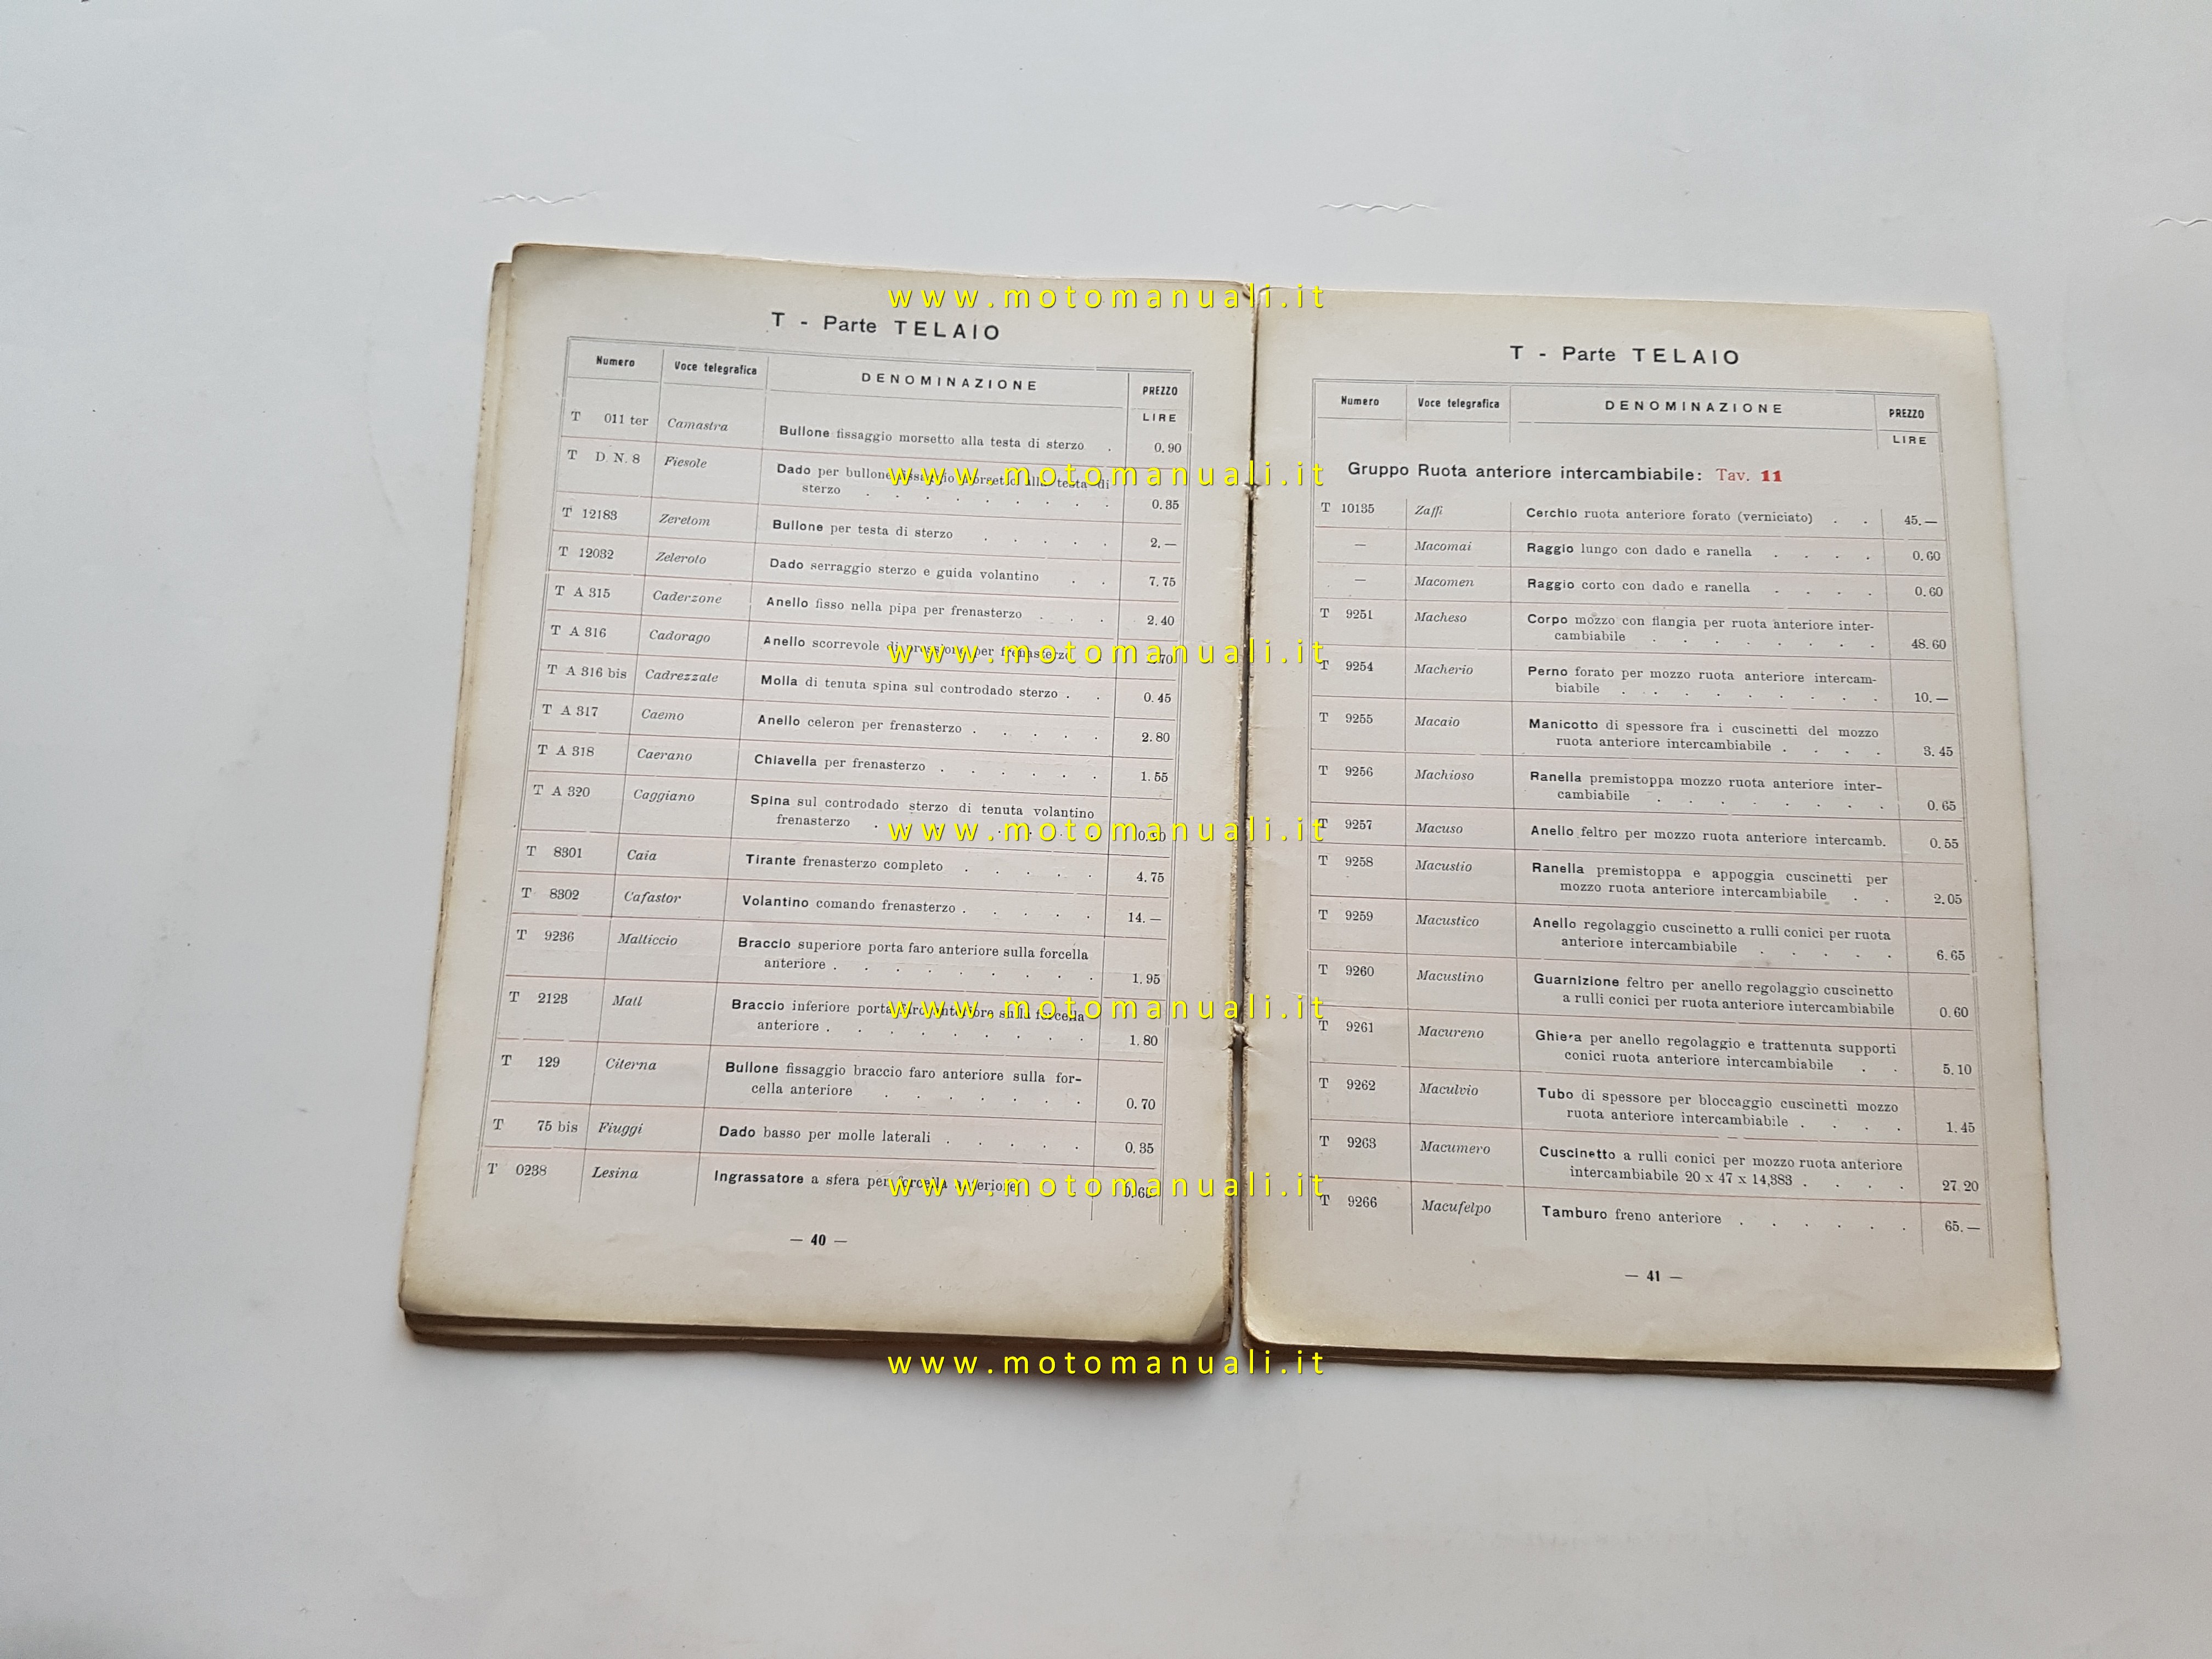 T - Parte TELAIO
Numero Voce telegrafica DENOMINAZIONE PREZZO
LIRE
T 011 ter Camastra Bullone fissaggio morsetto alla testa di sterzo . 0.90
T D. N. 8 Fiesole Dado per bullone fissaggio morsetto alla testa di
sterzo . . . . . . . . 0.35
T 12183 Zeretom Bullone per testa di sterzo . . . . . 2.—
T 12032 Zeleroto Dado serraggio sterzo e guida volantino . . 7.75
T A 315 Caderzone Anello fisso nella pipa per frenasterzo . . . 2.40
T A 316 Cadorago Anello scorrevole di pressione per frenasterzo .
T A 316 bis Cadrezzate Molla di tenuta spina sul controdado sterzo . . 0.45
T A 317 Caemo Anello celeron per frenasterzo . . . . . 2.80
T A 318 Caerano Chiavella per frenasterzo . . . . . . 1.55
T A 320 Caggiano Spina sul controdado sterzo di tenuta volantino
frenasterzo . . . . . . . .
T 8301 Caia Tirante frenasterzo completo . . . . . 4.75
T 8302 Cafastor Volantino comando frenasterzo . . . . . 14.—
T 9236 Malticcio Braccio superiore porta faro anteriore sulla forcella
anteriore . . . . . . . . . 1.95
T 2123 Matl Braccio inferiore porta faro anteriore sulla forcella
anteriore . . . . . . . . . 1.80
T 129 Citerna Bullone fissaggio braccio faro anteriore sulla for-
cella anteriore . . . . . . . 0.70
T 75 bis Fiuggi Dado basso per molle laterali . . . . . 0.35
T 0238 Lesina Ingrassatore a sfera per forcella anteriore
— 40 —
T - Parte TELAIO
Numero Voce telegrafica DENOMINAZIONE PREZZO
LIRE
Gruppo Ruota anteriore intercambiabile: Tav. 11
T 10135 Zaffi Cerchio ruota anteriore forato (verniciato) . . 45.—
— Macomai Raggio lungo con dado e ranella . . . . 0.60
— Macomen Raggio corto con dado e ranella . . . . 0.60
T 9251 Macheso Corpo mozzo con flangia per ruota anteriore inter-
cambiabile . . . . . . . . 48.60
T 9254 Macherio Perno forato per mozzo ruota anteriore intercam-
biabile . . . . . . . . . 10.—
T 9255 Macaio Manicotto di spessore fra i cuscinetti del mozzo
ruota anteriore intercambiabile . . . . 3.45
T 9256 Machioso Ranella premistoppa mozzo ruota anteriore inter-
cambiabile . . . . . . . . 0.65
T 9257 Macuso Anello feltro per mozzo ruota anteriore intercamb. 0.55
T 9258 Macustio Ranella premistoppa e appoggia cuscinetti per
mozzo ruota anteriore intercambiabile . . 2.05
T 9259 Macustico Anello regolaggio cuscinetto a rulli conici per ruota
anteriore intercambiabile . . . . . 6.65
T 9260 Macustino Guarnizione feltro per anello regolaggio cuscinetto
a rulli conici per ruota anteriore intercambiabile 0.60
T 9261 Macureno Ghiera per anello regolaggio e trattenuta supporti
conici ruota anteriore intercambiabile . . 5.10
T 9262 Maculvio Tubo di spessore per bloccaggio cuscinetti mozzo
ruota anteriore intercambiabile . . . . 1.45
T 9263 Macumero Cuscinetto a rulli conici per mozzo ruota anteriore
intercambiabile 20 x 47 x 14,383 . . . . 27.20
T 9266 Macufelpo Tamburo freno anteriore . . . . . . 65.—
— 41 —
www.motomanuali.it
www.motomanuali.it
www.motomanuali.it
www.motomanuali.it
www.motomanuali.it
www.motomanuali.it
www.motomanuali.it